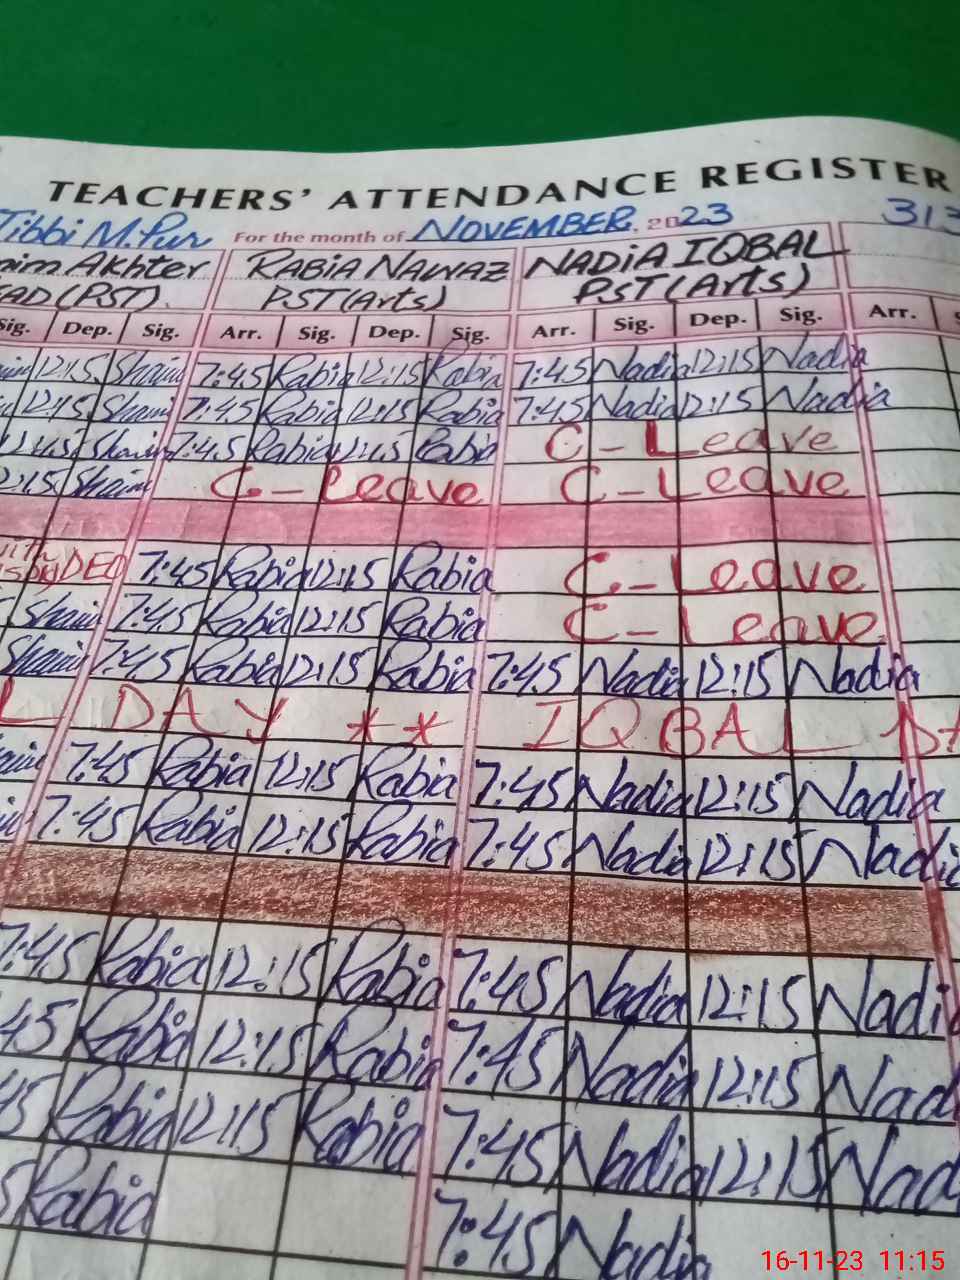 TEACHERS' ATTENDANCE REGISTER
Tibbi M.Pur For the month of NOVEMBER. 2023 313
Akhter RABIA NAWAZ NADIA IQBAL
(PST). PST(Arts) PST(Arts)
Sig. Dep. Sig. Arr. Sig. Dep. Sig. Arr. Sig. Dep. Sig. Arr.
12:15 7:45 Rabia 12:15 Rabia 7:45 Nadia 12:15 Nadia
12:15 7:45 Rabia 12:15 Rabia 7:45 Nadia 12:15 Nadia
7:45 Rabia 12:15 Rabia C-Leave
C-Leave C-Leave
DEO 7:45 Rabia 12:15 Rabia C-Leave
7:45 Rabia 12:15 Rabia C-Leave
7:45 Rabia 12:15 Rabia 7:45 Nadia 12:15 Nadia
L DAY ** IQBAL
7:45 Rabia 12:15 Rabia 7:45 Nadia 12:15 Nadia
7:45 Rabia 12:15 Rabia 7:45 Nadia 12:15 Nadia
7:45 Rabia 12:15 Rabia 7:45 Nadia 12:15 Nadi
45 Rabia 12:15 Rabia 7:45 Nadia 12:15 Nad
45 Rabia 12:15 Rabia 7:45 Nadia 12:15 Nad
5 Rabia 7:45 Nadia
16-11-23 11:15